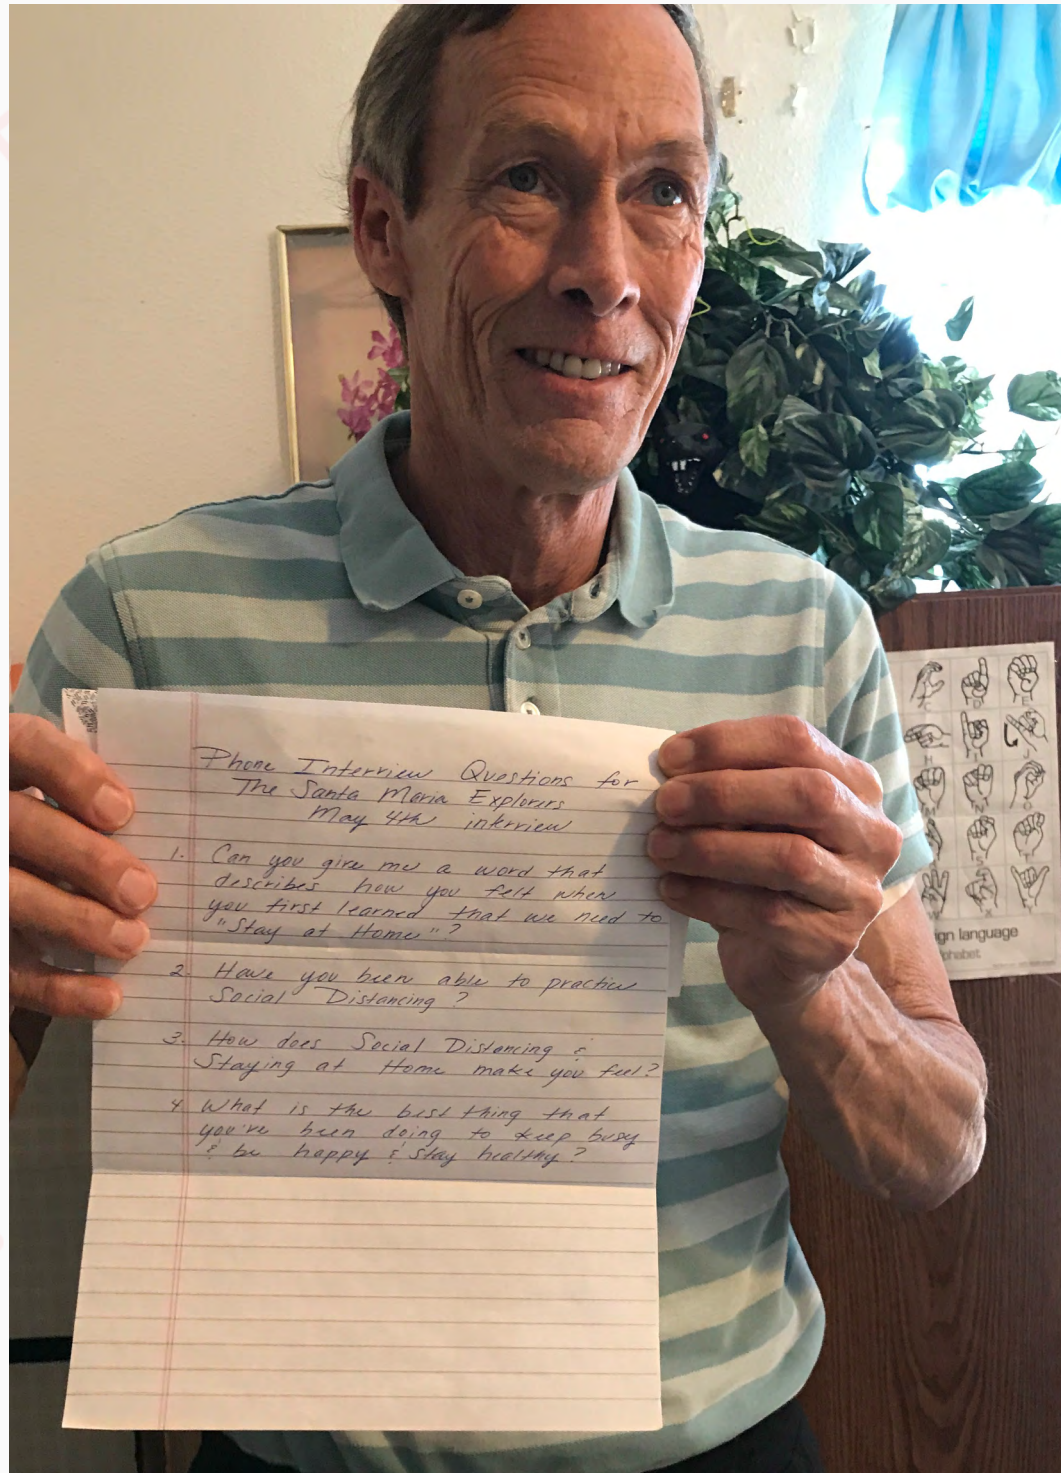 Phone Interview Questions for
The Santa Maria Explorers
May 4th interview
1. Can you give me a word that
describes how you felt when
you first learned that we need to
"Stay at Home"?
2. Have you been able to practice
Social Distancing?
3. How does Social Distancing &
Staying at Home make you feel?
4. What is the best thing that
you've been doing to keep busy
& be happy & stay healthy?
C D E
H I J
M N O
S T
W X Y
ign language
phabet.